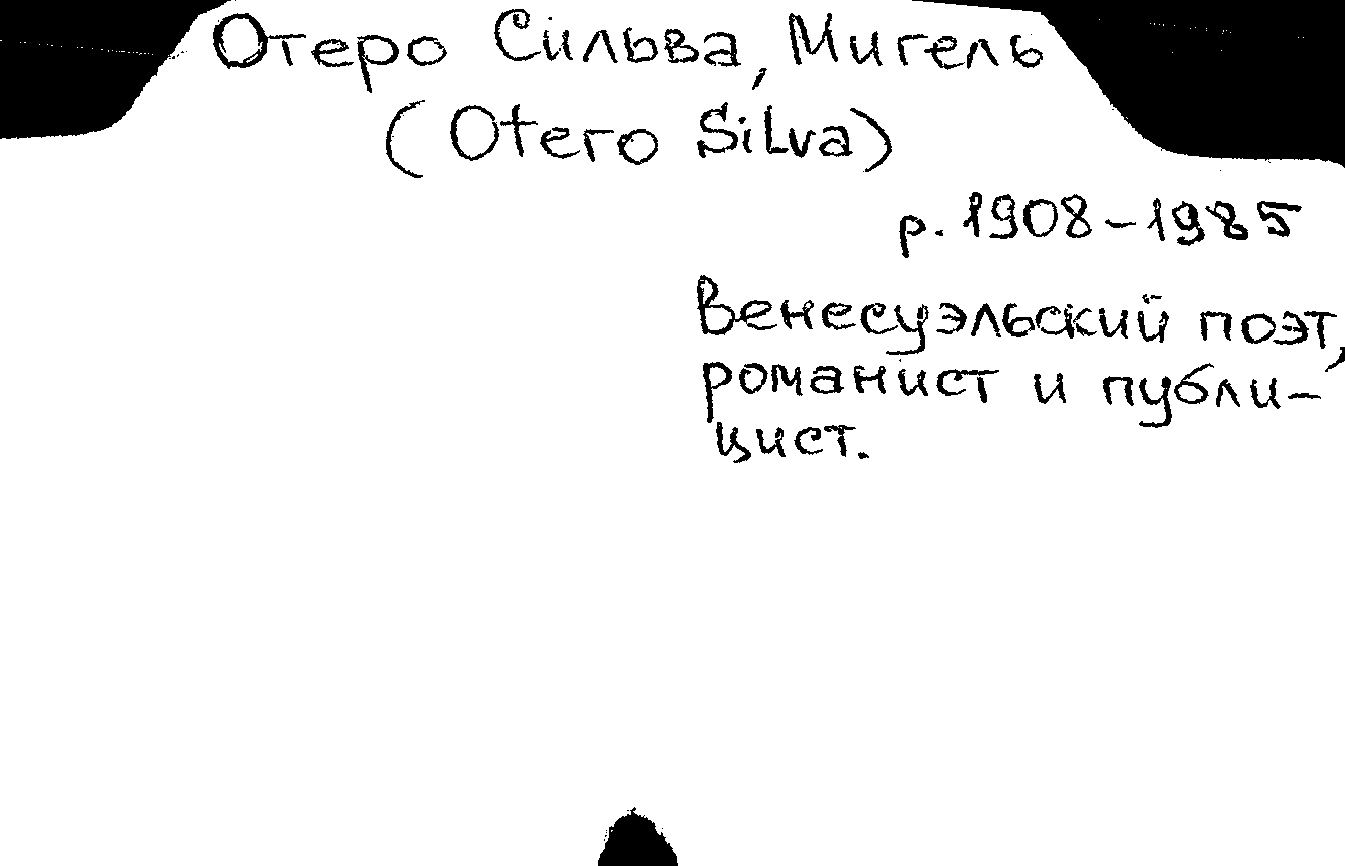 Отеро Сильва, Мигель
(Otero Silva)
р. 1908-1985
Венесуэльский поэт,
романист и публи-
цист.